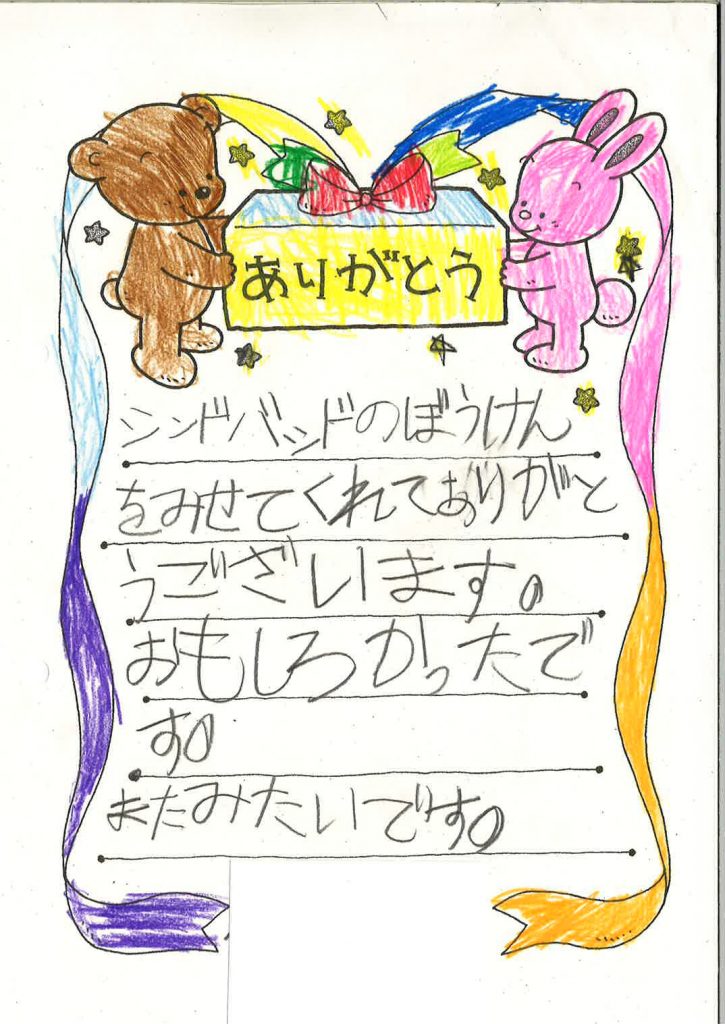 ありがとう
シンドバッドのぼうけん
をみせてくれてありがと
うございます。
おもしろかったで
す。
またみたいです。